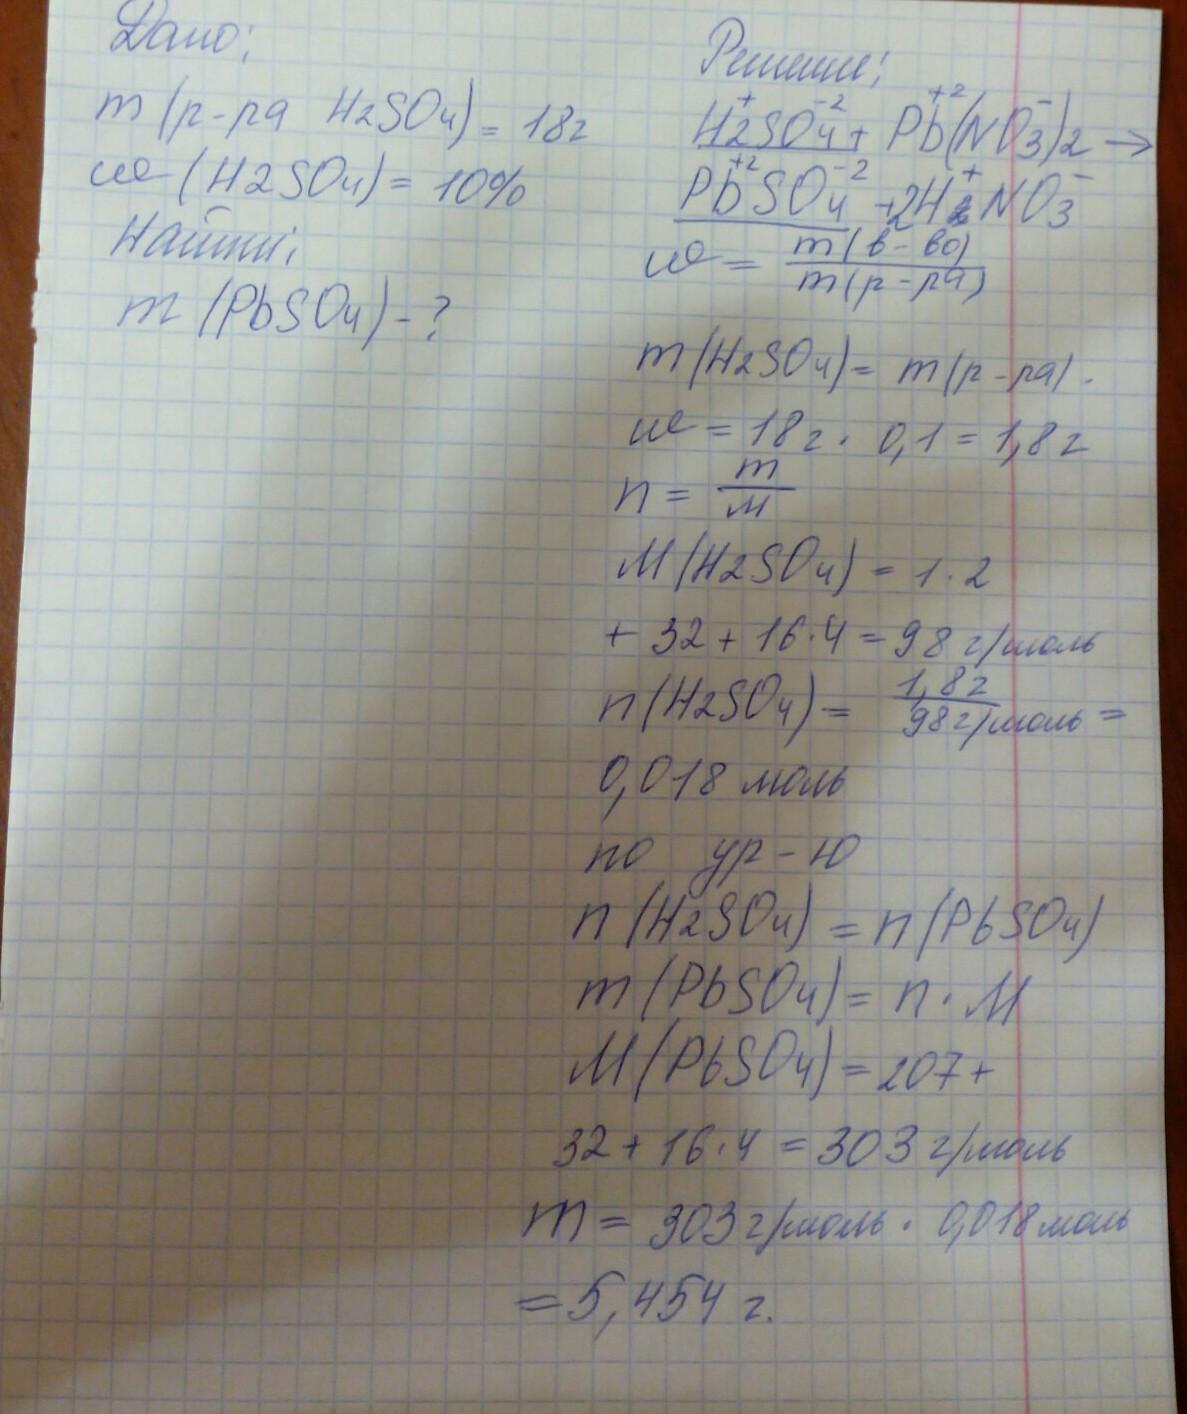 Дано:
m (р-ра H2SO4) = 18г
ω (H2SO4) = 10%
Найти:
m (PbSO4) - ?
Решение:
H2⁺SO4⁻² + Pb⁺²(NO3⁻)2 →
Pb⁺²SO4⁻² + 2H⁺NO3⁻
ω = m(в-во) / m(р-ра)
m(H2SO4) = m(р-ра) ·
ω = 18г · 0,1 = 1,8г
n = m / M
M(H2SO4) = 1·2
+ 32 + 16·4 = 98г/моль
n(H2SO4) = 1,8г / 98г/моль =
0,018 моль
по ур-ю
n (H2SO4) = n (PbSO4)
m (PbSO4) = n · M
M (PbSO4) = 207+
32 + 16·4 = 303 г/моль
m = 303г/моль · 0,018моль
= 5,454 г.